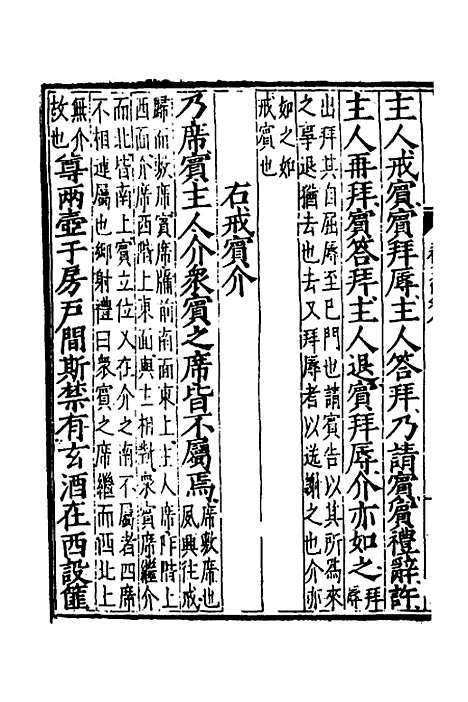 主人戒賓賓拜辱主人答拜乃請賓賓禮辭許
主人再拜賓答拜主人退賓拜辱介亦如之拜辱
出拜其自屈辱至己門也請賓告以其所爲來
之事退猶去也去又拜辱者以送謝之也介亦
如之如
戒賓也
右戒賓介
乃席賓主人介衆賓之席皆不屬焉席敷席也
夙興往戒
歸而敷席賓席牖前南面東上主人席阼階上
西面介席西階上東面與主相對衆賓席繼介
而北皆南上賓立位又在介之南不屬者四席
不相連屬也鄉射禮曰衆賓之席繼而西北上
無介
故也尊兩壺于房戸間斯禁有玄酒在西設篚